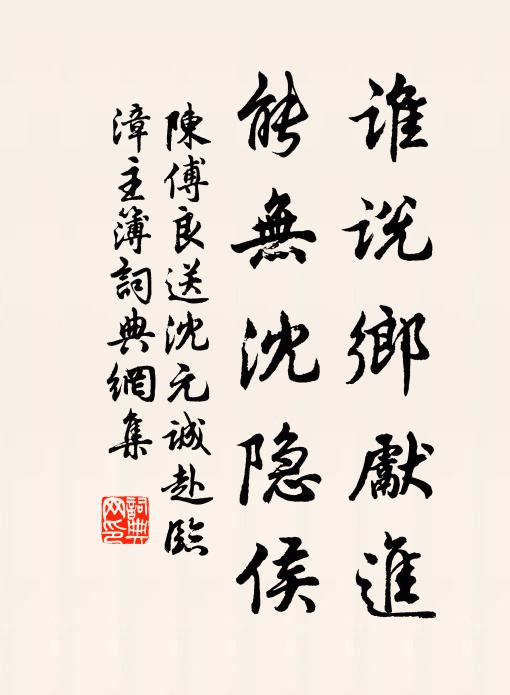 谁说鄉獻進
能無沈隐侯
陳傅良送沈元誠赴臨
漳主簿詞典網集
詞典網印